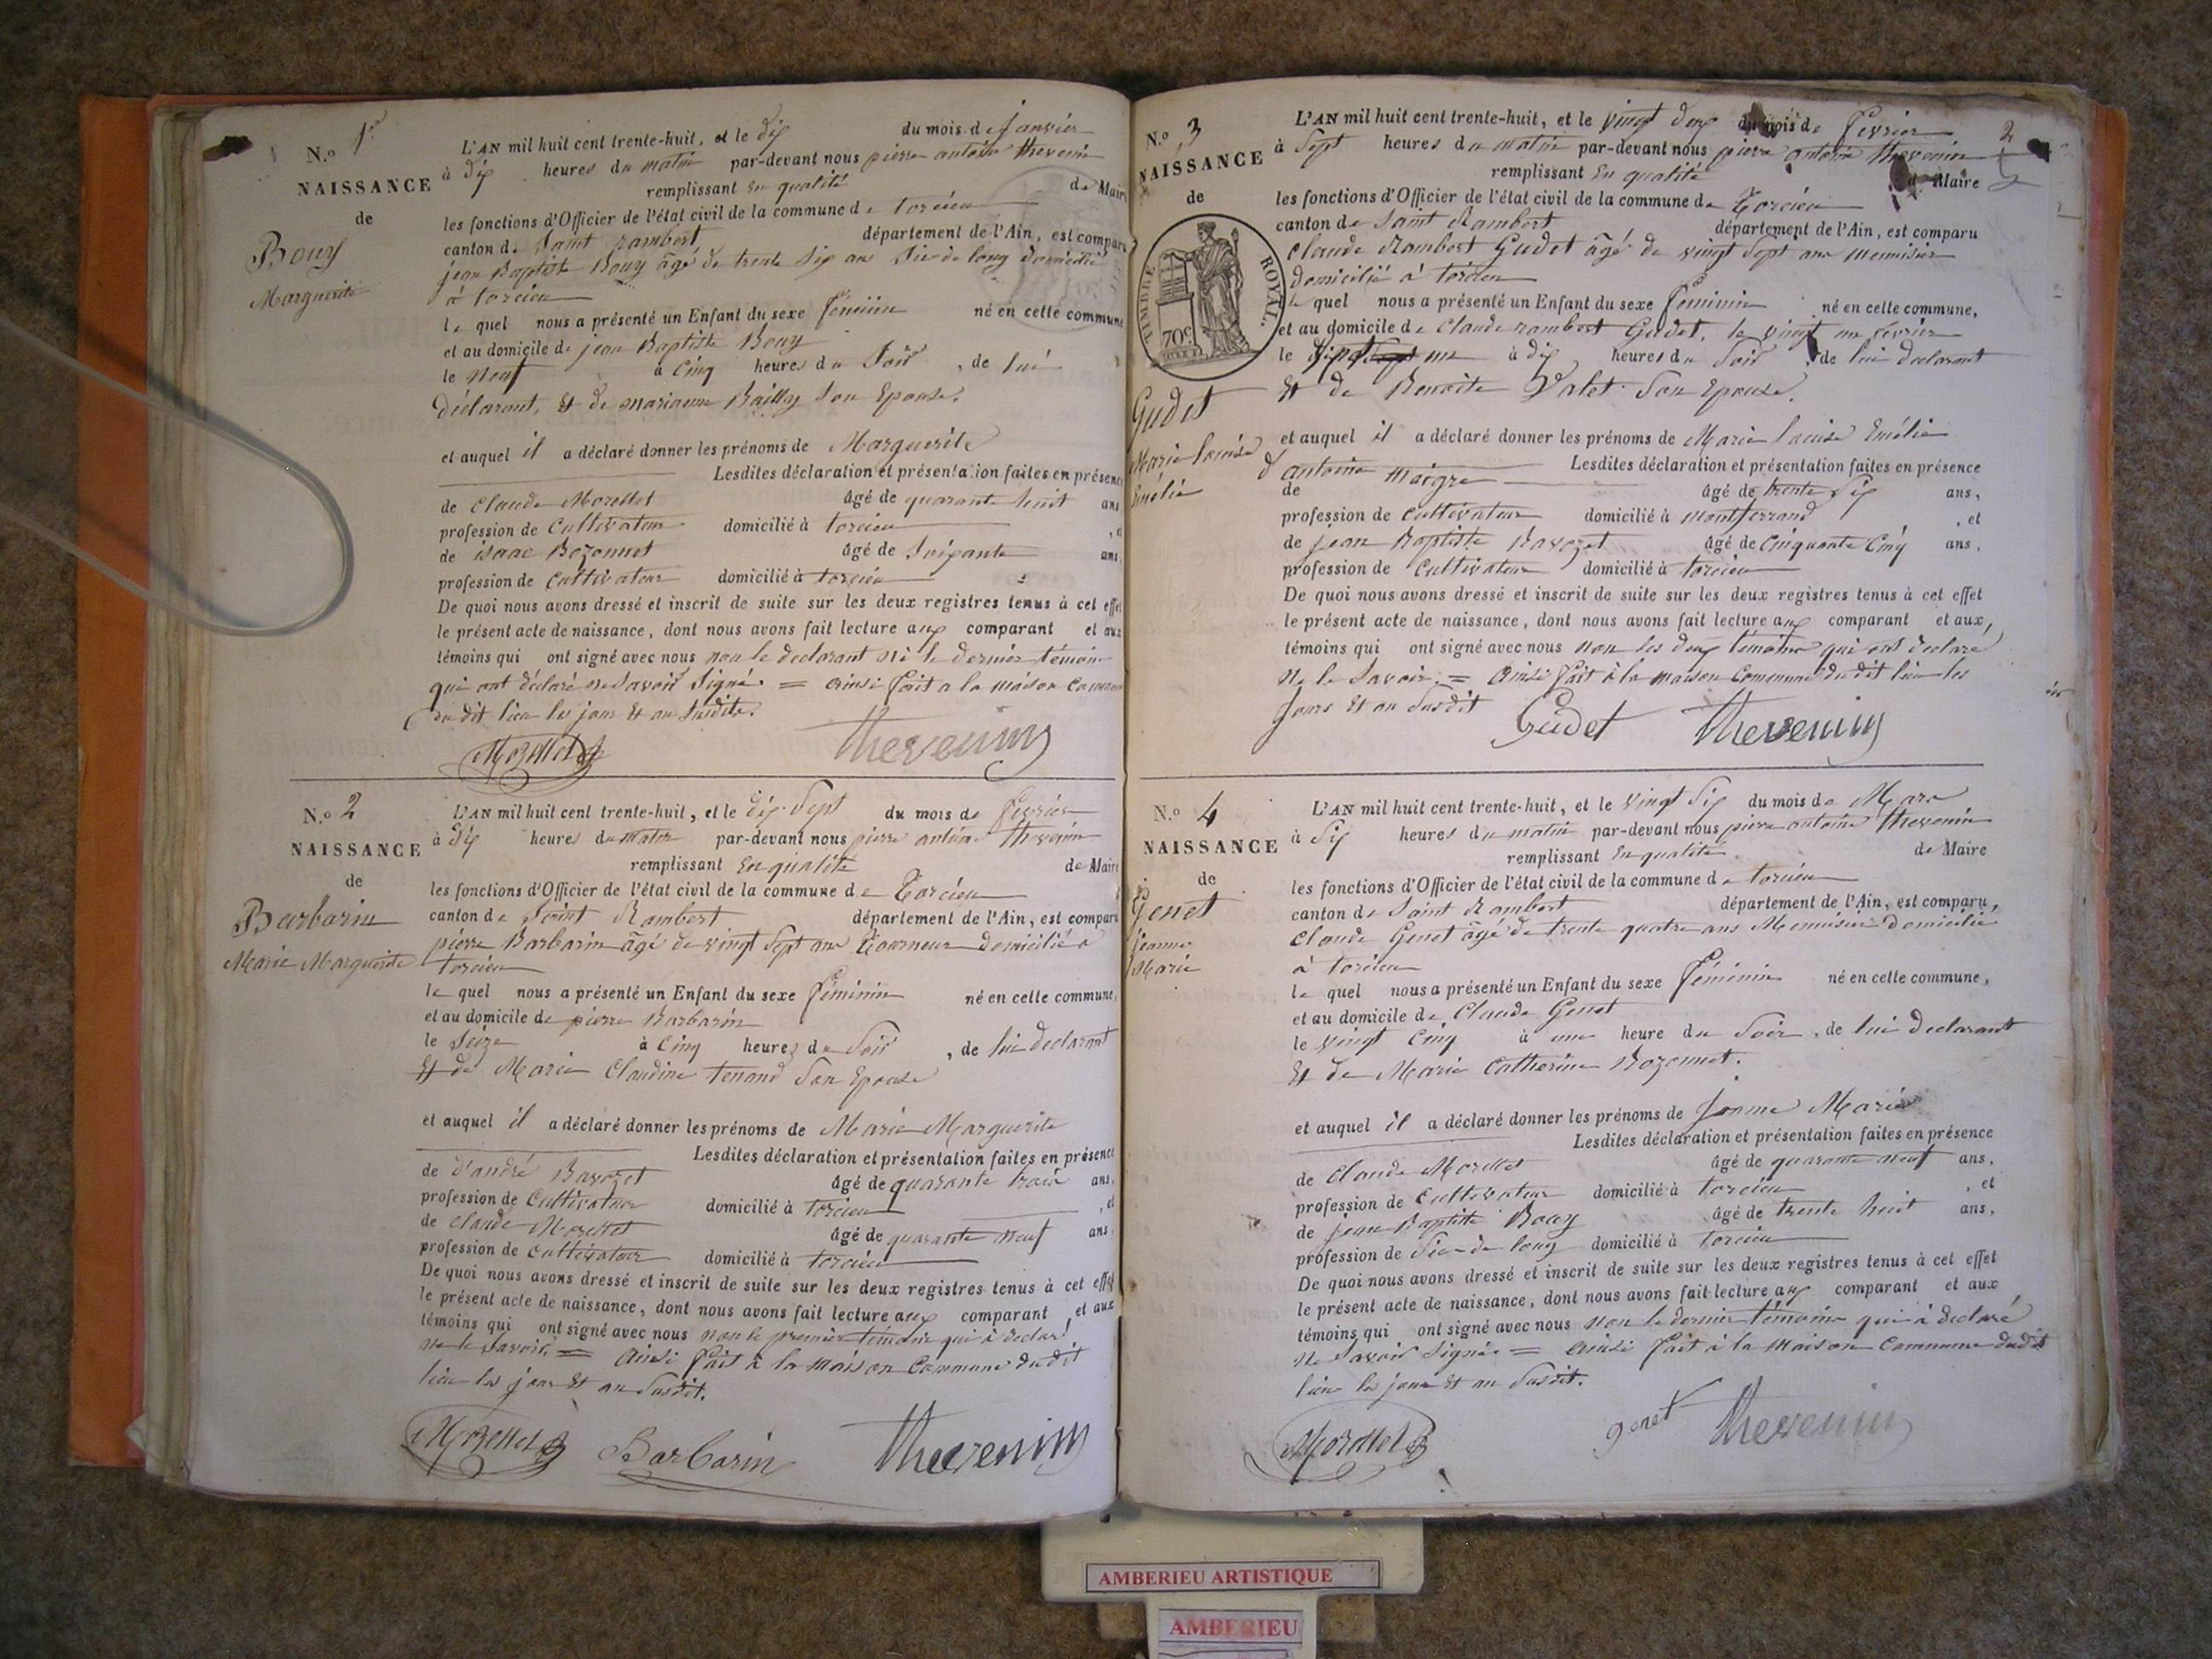 N.o 1er
NAISSANCE
de
Bouy
Marguerite
L'AN mil huit cent trente-huit, et le dix du mois de janvier
à dix heures du matin par-devant nous pierre antoine thevenin
remplissant en qualité de Maire
les fonctions d'Officier de l'état civil de la commune de torcieu
canton de Saint rambert département de l'Ain, est comparu
jean Baptiste Bouy âgé de trente Six ans Sie de long domicilié
à torcieu
le quel nous a présenté un Enfant du sexe féminin né en cette commune
et au domicile de jean Baptiste Bouy
le neuf à Cinq heures du Soir, de lui
déclarant, Et de marianne Bailly Son Epouse.
et auquel il a déclaré donner les prénoms de Marguerite
Lesdites déclaration et présentation faites en présence
de Claude Morellet âgé de quarante huit ans
profession de Cultivateur domicilié à torcieu, et
de isaac Bozonnet âgé de Soixante ans,
profession de Cultivateur domicilié à torcieu
De quoi nous avons dressé et inscrit de suite sur les deux registres tenus à cet effet
le présent acte de naissance, dont nous avons fait lecture aux comparant et aux
témoins qui ont signé avec nous non le declarant ni le dernier témoin
qui ont déclaré ne Savoir Signé. = ainsi fait a la maison Commune
du dit lieu les jour Et an Susdits.
Morellet thevenin
N.o 2
NAISSANCE
de
Barbarin
Marie Marguerite
L'AN mil huit cent trente-huit, et le dix Sept du mois de fevrier
à dix heures du matin par-devant nous pierre antoine thevenin
remplissant En qualité de Maire
les fonctions d'Officier de l'état civil de la commune de Torcieu
canton de Saint Rambert département de l'Ain, est comparu
pierre Barbarin âgé de vingt Sept ans Tourneur domicilié à
torcieu
le quel nous a présenté un Enfant du sexe féminin né en cette commune,
et au domicile de pierre Barbarin
le Seize à Cinq heures du Soir, de lui declarant
Et de Marie Claudine tenand Son Epouse
et auquel il a déclaré donner les prénoms de Marie Marguerite
Lesdites déclaration et présentation faites en présence
de d'andré Ravozet âgé de quarante trois ans,
profession de Cultivateur domicilié à torcieu, et
de Claude Morellet âgé de quarante neuf ans,
profession de cultivateur domicilié à torcieu
De quoi nous avons dressé et inscrit de suite sur les deux registres tenus à cet effet
le présent acte de naissance, dont nous avons fait lecture aux comparant et aux
témoins qui ont signé avec nous non le premier témoin qui à declaré
ne le Savoir. = Ainsi fait à la maison Commune dudit
lieu les jour Et an Susdit.
Morellet Barbarin thevenin
2
N.o 3
NAISSANCE
de
TIMBRE ROYAL.
70c
Gudet
Marie louise
Emélie
L'AN mil huit cent trente-huit, et le vingt deux du mois de fevrier
à Sept heures du matin par-devant nous pierre antoine thevenin
remplissant En qualité de Maire
les fonctions d'Officier de l'état civil de la commune de Torcieu
canton de Saint Rambert département de l'Ain, est comparu
Claude Rambert Gudet âgé de vingt Sept ans Menuisier
domicilié à torcieu
le quel nous a présenté un Enfant du sexe féminin né en cette commune,
et au domicile de Claude rambert Gudet, le vingt un fevrier
le un à dix heures du Soir, de lui declarant
Et de Benoite Valet Son Epouse.
et auquel il a déclaré donner les prénoms de Marie louise Emélie
Lesdites déclaration et présentation faites en présence
de d'antoine maigre âgé de trente Six ans,
profession de Cultivateur domicilié à montferrand, et
de jean Baptiste Ravozet âgé de Cinquante Cinq ans,
profession de Cultivateur domicilié à torcieu
De quoi nous avons dressé et inscrit de suite sur les deux registres tenus à cet effet
le présent acte de naissance, dont nous avons fait lecture aux comparant et aux,
témoins qui ont signé avec nous non les deux témoins qui ont declaré
ne le Savoir. = Ainsi fait à la maison Commune du dit lieu les
jours Et an Susdit
Gudet thevenin
N.o 4
NAISSANCE
de
Genet
jeanne
Marie
L'AN mil huit cent trente-huit, et le vingt Six du mois de Mars
à Six heures du matin par-devant nous pierre antoine thevenin
remplissant En qualité de Maire
les fonctions d'Officier de l'état civil de la commune de torcieu
canton de Saint Rambert département de l'Ain, est comparu,
Claude Genet âgé de trente quatre ans Menuisier domicilié
à torcieu
le quel nous a présenté un Enfant du sexe féminin né en cette commune,
et au domicile de Claude Genet
le vingt Cinq à une heure du Soir, de lui declarant
Et de Marie Catherine Bozonnet.
et auquel il a déclaré donner les prénoms de jeanne Marie
Lesdites déclaration et présentation faites en présence
de Claude Morellet âgé de quarante neuf ans,
profession de Cultivateur domicilié à torcieu, et
de jean Baptiste Bouy âgé de trente huit ans,
profession de Sieur de long domicilié à torcieu
De quoi nous avons dressé et inscrit de suite sur les deux registres tenus à cet effet
le présent acte de naissance, dont nous avons fait lecture aux comparant et aux
témoins qui ont signé avec nous non le dernier témoin qui à declaré
ne Savoir Signé. = ainsi fait à la maison Commune dudit
lieu les jour Et an Susdit.
Morellet genet thevenin
AMBERIEU ARTISTIQUE
AMBERIEU